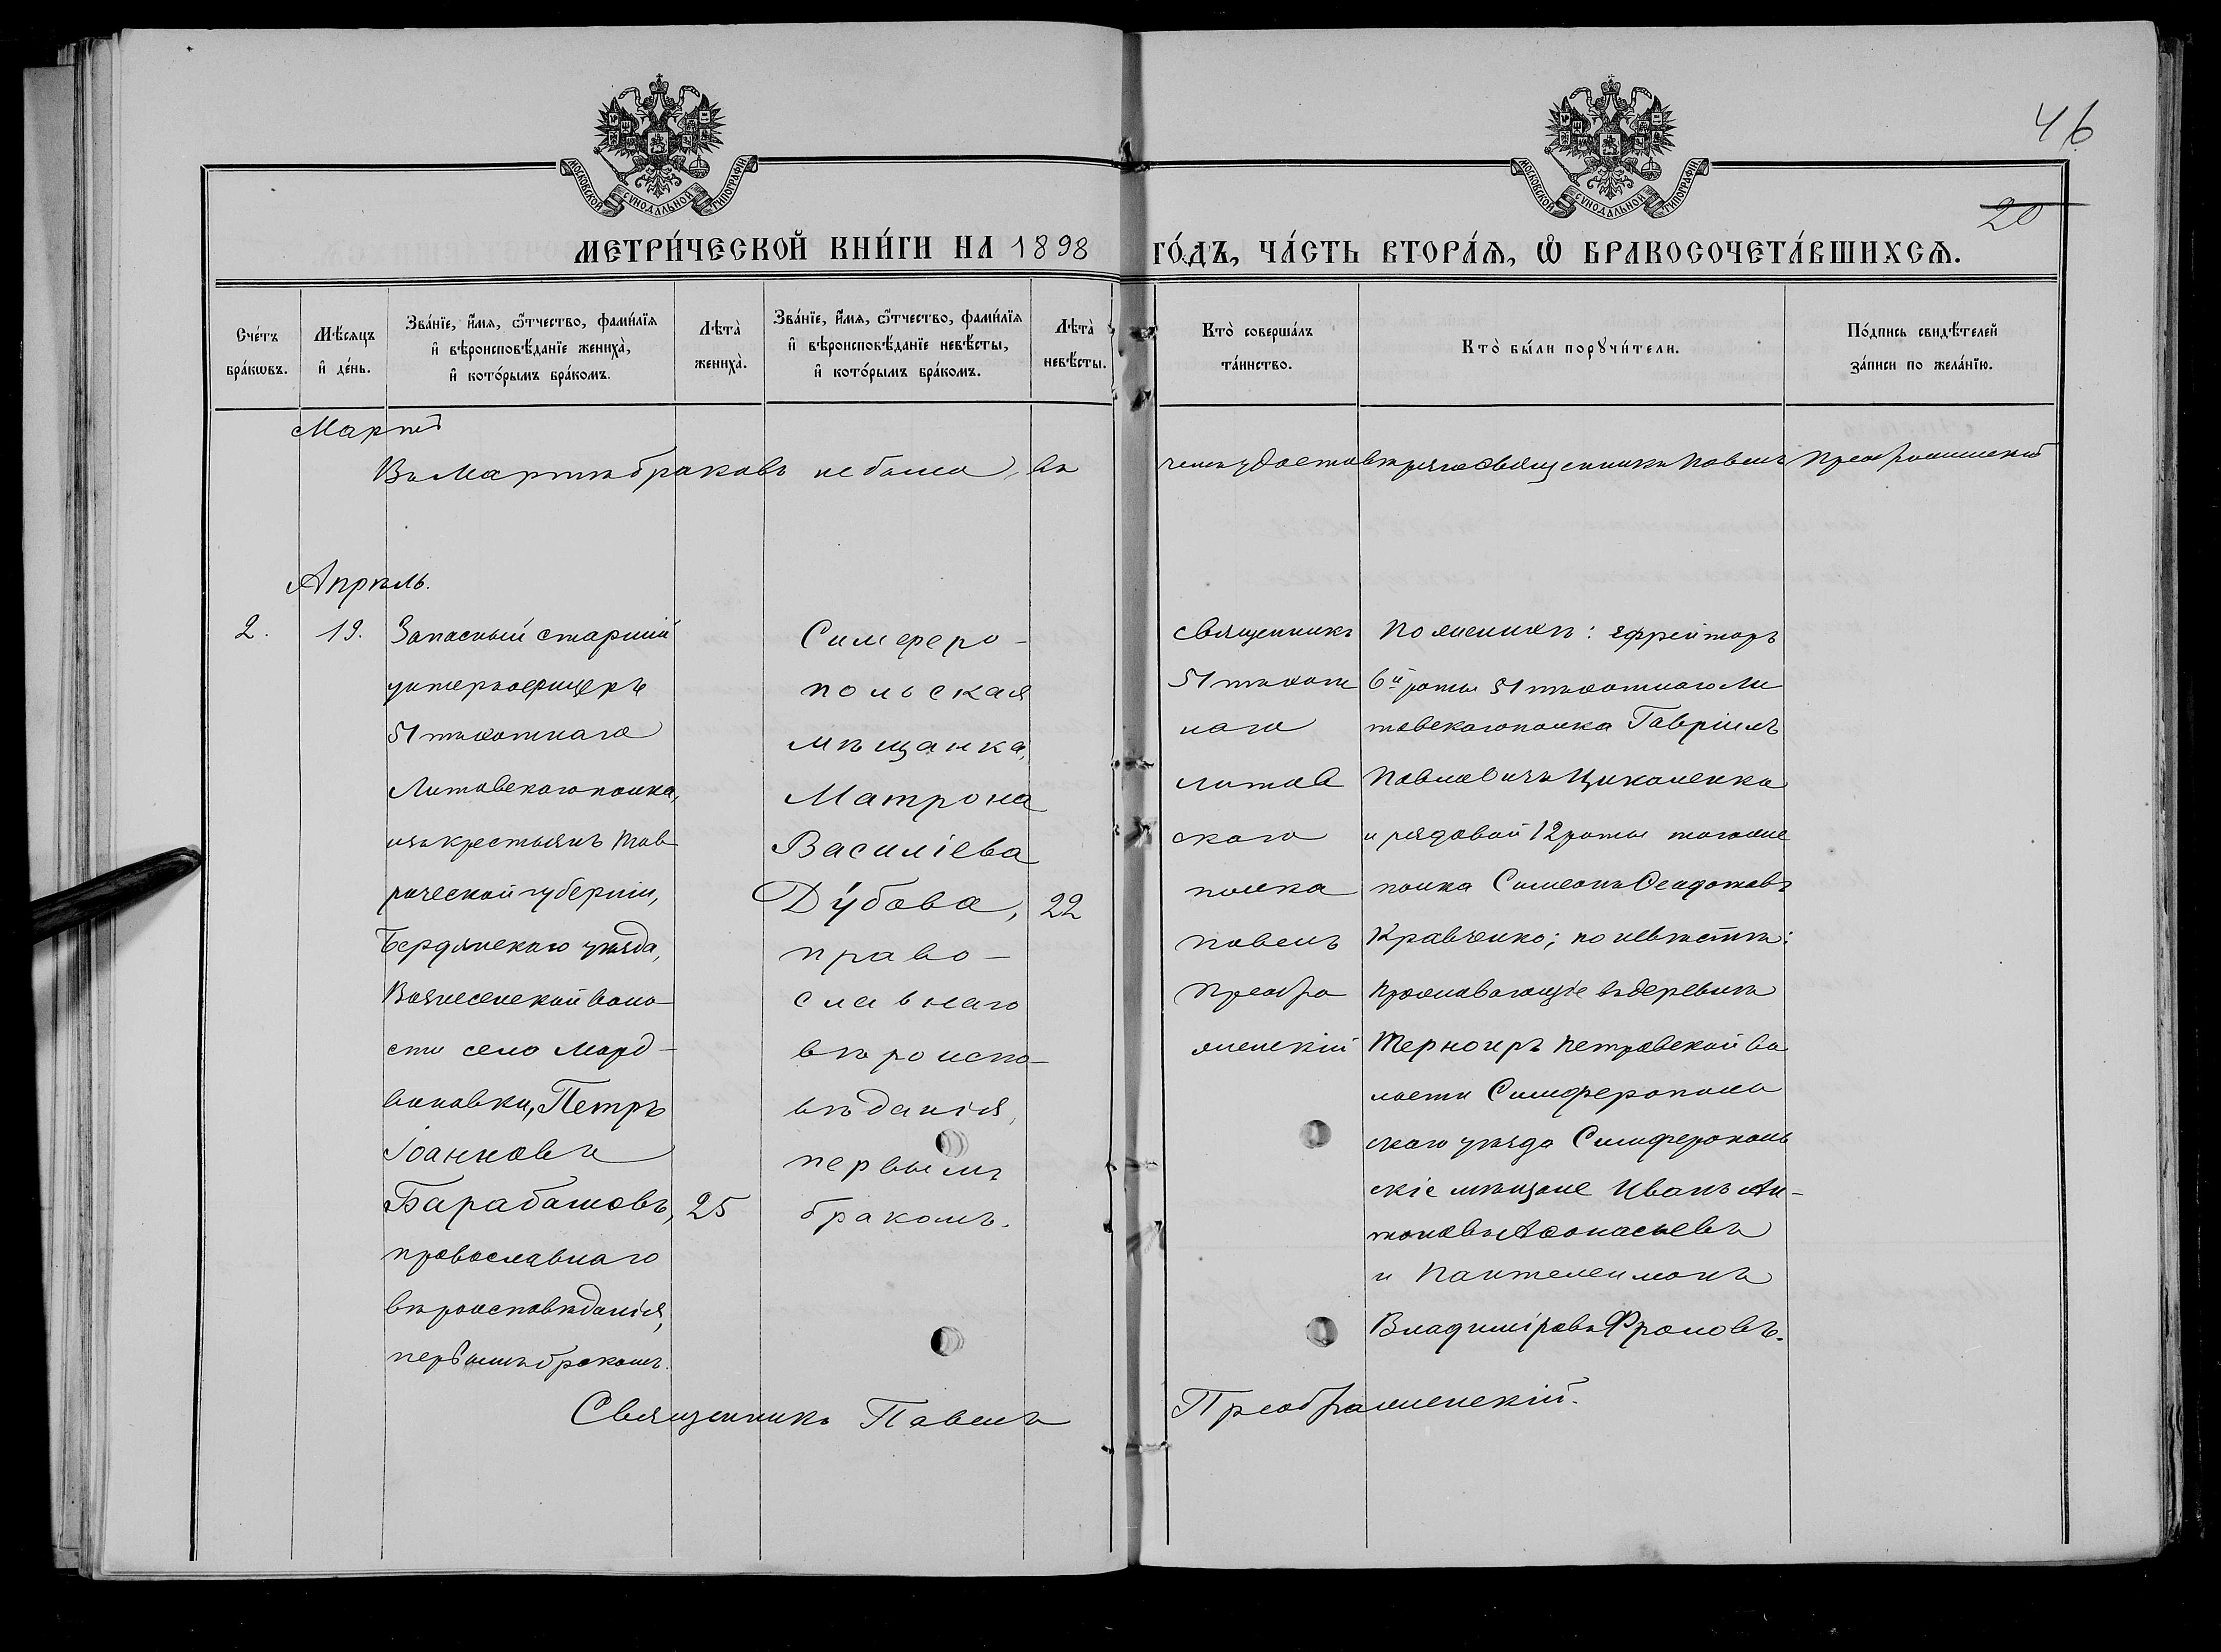 46
20
МОСКОВСКОЙ СУНОДАЛЬНОЙ ТИПОГРАФІИ
МОСКОВСКОЙ СУНОДАЛЬНОЙ ТИПОГРАФІИ
МЕТРИ́ЧЕСКОЙ КНИ́ГИ НА 1898 ГО́ДЪ, ЧА́СТЬ ВТОРА́Я, Ѽ БРАКОСОЧЕТА́ВШИХСЯ.
Сче́тъ
бра́кωвъ.
Мѣ́сяцъ
и҆ де́нь.
Зва́нїе, и҆́мя, ѻ҆́тчество, фами́лїя
и҆ вѣроисповѣ́данїе жениха̀,
и҆ кото́рымъ бра́комъ.
Лѣта̀
жениха̀.
Зва́нїе, и҆́мя, ѻ҆́тчество, фами́лїя
и҆ вѣроисповѣ́данїе невѣ́сты,
и҆ кото́рымъ бра́комъ.
Лѣта̀
невѣ́сты.
Кто̀ соверша́лъ
та́инство.
Кто̀ бы́ли порꙋчи́тели.
По́дпись свидѣ́телей
за́писи по жела́нїю.
Мартъ
Въ Мартѣ браковъ не было, въ чемъ удостовѣряю священникъ Павелъ Преображенскій
Апрѣль.
2.
19.
Запасный старшій
унтеръ офицеръ
51 пѣхотнаго
Литовскаго полка,
изъ крестьянъ Тав
рической губерніи,
Бердянскаго уѣзда,
Вознесенской воло
сти села Морд-
виновки, Петръ
Іоанновъ
Барабашовъ,
православнаго
вѣроисповѣданія,
первымъ бракомъ.
25
Симферо-
польская
мѣщанка,
Матрона
Василіева
Ду́бова,
право-
славнаго
вѣроиспо-
вѣданія,
первымъ
бракомъ.
22
Священникъ
51 пѣхот
наго
литов
скаго
полка
Павелъ
Преобра
женскій
По женихѣ: ефрейторъ
6й роты 51 пѣхотнаго Ли
товскаго полка Гавріилъ
Павловичъ Цикаленко
и рядовой 12 роты тогоже
полка Симеонъ Феодотовъ
Кравченко; по невѣстѣ:
Проживающіе въ деревнѣ
Терноиръ Петровской во
лости Симферополь
скаго уѣзда Симферополь
скіе мѣщане Иванъ Ан-
тоновъ Аѳонасьевъ
и Пантелеимонъ
Владиміровъ Фроловъ.
Священникъ Павелъ Преображенскій.